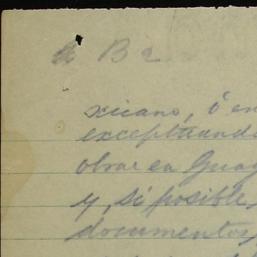 xicano, ó en
exceptuando
obrar en Guay
y, si posible,
documentos,